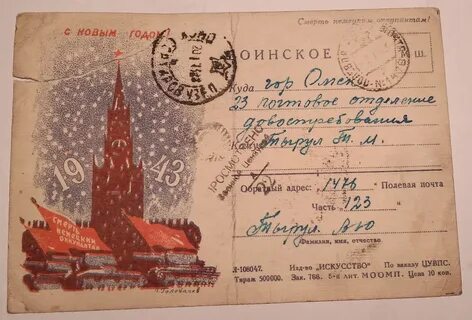 С НОВЫМ ГОДОМ!
Смерть немецким оккупантам!
ВОИНСКОЕ
Куда гор Омск
23 почтовое отделение
довостребования
Кому Тырул Т. М.
ПРОСМОТРЕНО
Военной Цензурой
1943
Обратный адрес: 1476 Полевая почта
Часть 123
Тырул А Ю
Фамилия, имя, отчество
СМЕРТЬ
НЕМЕЦКИМ
ОККУПАНТАМ!
Л-108047. Изд-во „ИСКУССТВО" По заказу ЦУВПС.
Тираж 500000. Зак. 768. 6-я лит. МООМП. Цена 10 коп.